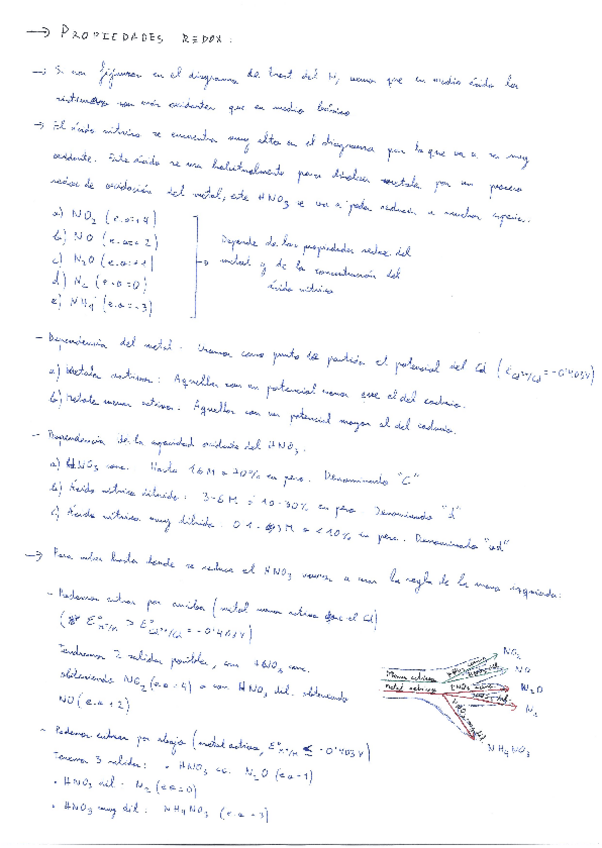 → PROPIEDADES REDOX:
→ Si nos fijamos en el diagrama de Frost del N, vemos que en medio ácido las
sustancias son más oxidantes que en medio básico
→ El ácido nítrico se encuentra muy alto en el diagrama por lo que va a ser muy
oxidante. Este ácido se usa habitualmente para disolver metales por un proceso
redox de oxidación del metal, este HNO3 se va a poder reducir a muchas especies.
a) NO2 (e.o=+4)
b) NO (e.o=+2)
c) N2O (e.o=+1)
d) N2 (e.o=0)
e) NH4+ (e.o=-3)
Depende de las propiedades redox del
metal y de la concentración del
ácido nítrico
- Dependencia del metal. Usamos como punto de partida el potencial del Cd (E°Cd2+/Cd = -0'403V)
a) Metales activos: Aquellos con un potencial menor que el del cadmio.
b) Metales menos activos. Aquellos con un potencial mayor al del cadmio.
- Dependencia de la capacidad oxidante del HNO3.
a) HNO3 conc. Hasta 16M o 70% en peso. Denominado "C"
b) Ácido nítrico diluido: 3-6M = 10-30% en peso Denominado "d"
c) Ácido nítrico muy diluido. 0'1-3M = <10% en peso. Denominado "md"
→ Para saber hasta donde se reduce el HNO3 vamos a usar la regla de la mano izquierda:
- Podemos entrar por arriba (metal menos activo que el Cd)
(E° > E°Cd2+/Cd = -0'403V)
Tendremos 2 salidas posibles, con HNO3 conc.
obteniendo NO2 (e.o=4) o con HNO3 dil. obteniendo
NO (e.o+2)
Menos activos
Metal activo
NO2
NO
N2O
N2
NH4NO3
- Podemos entrar por abajo (metal activo, E° ≤ -0'403V)
Tenemos 3 salidas: • HNO3 cc. N2O (e.o-1)
• HNO3 dil. N2 (e.o=0)
• HNO3 muy dil. NH4NO3 (e.o-3)